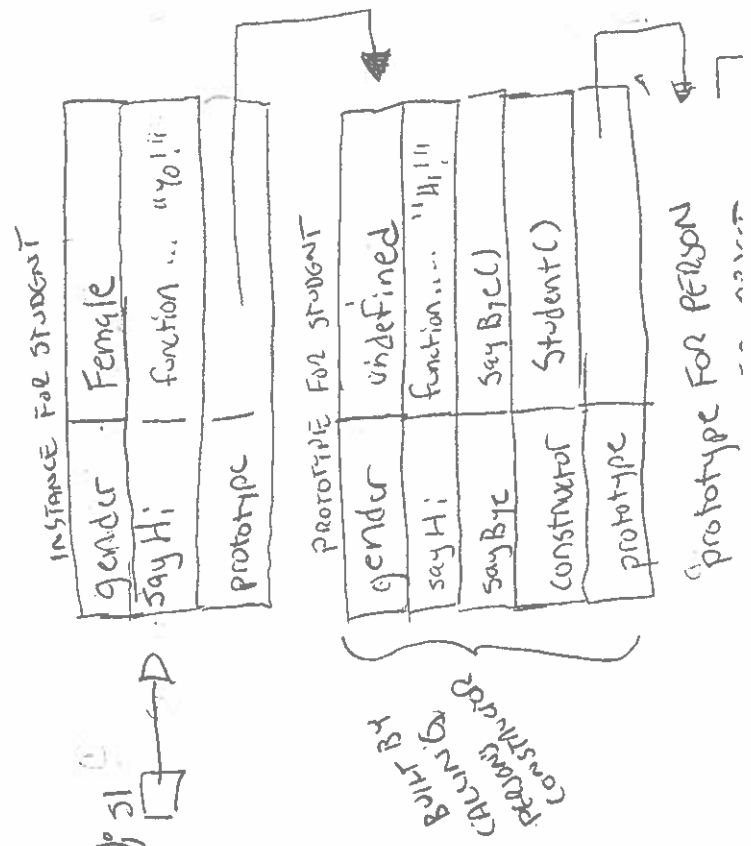 S1
INSTANCE FOR STUDENT
gender Female
SayHi function... "Yo!"
prototype
PROTOTYPE FOR STUDENT
gender undefined
sayHi function.... "Hi!"
sayBye sayBye()
constructor Student()
prototype
BUILT BY
CALLING
PERSON'S
CONSTRUCTOR
prototype FOR PERSON